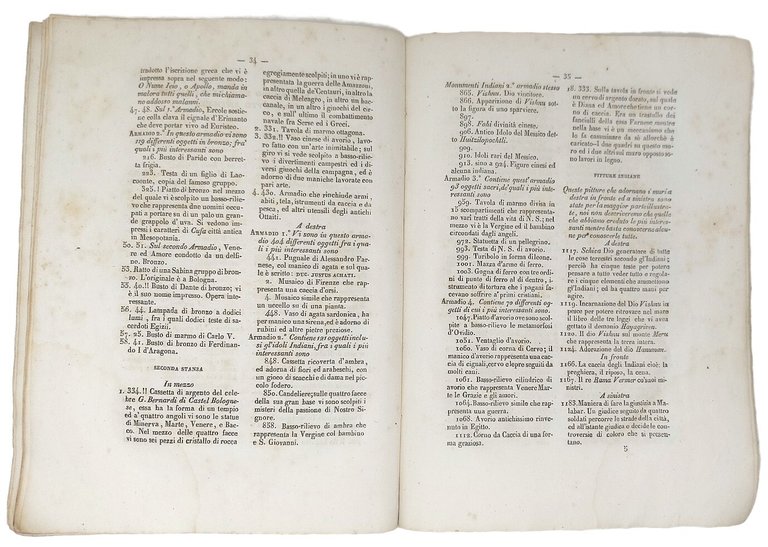 — 34 —
tradotto l'iscrizione greca che vi è
impressa sopra nel seguente modo:
O Nume Ieio, o Apollo, manda in
malora tutti quelli, che mi chiama-
no addosso malanni.
47. 48. Sul 1.° Armadio, Ercole sostiene
con la clava il cignale d'Erimanto
che deve portar vivo ad Euristeo.
ARMADIO 2.° In questo armadio vi sono
129 differenti oggetti in bronzo; fra
quali i più interessanti sono
216. Busto di Paride con berret-
ta frigia.
223. Testa di un figlio di Lao-
coonte, copia del famoso gruppo.
325.! Piatto di bronzo nel mezzo
del quale vi è scolpito un basso-rilie-
vo che rappresenta due uomini occu-
pati a portare su di un palo un gran-
de grappolo d'uva. Si vedono im-
pressi i caratteri di Cufa città antica
in Mesopotania.
50. 51. Sul secondo Armadio, Vene-
re ed Amore condotto da un delfi-
no. Bronzo.
53. Ratto di una Sabina gruppo di bron-
zo. L'originale è a Bologna.
55. 40.!! Busto di Dante di bronzo; vi
è il suo nome impresso. Opera inte-
ressante.
56. 44. Lampada di bronzo a dodici
lumi, fra i quali dodici teste di sa-
cerdoti Egizii.
57. 25. Busto di marmo di Carlo V.
58. 41. Busto di bronzo di Ferdinan-
do I d'Aragona.
SECONDA STANZA
In mezzo
1. 334.!! Cassetta di argento del cele-
bre G. Bernardi di Castel Bologne-
se, essa ha la forma di un tempio
ed a' quattro angoli vi sono le statue
di Minerva, Marte, Venere, e Bac-
co. Nel mezzo delle quattro facce
vi sono sei pezzi di cristallo di rocca
egregiamente scolpiti; in uno vi è rap-
presentata la guerra delle Amazzoni,
in altro quella de' Centauri, in altro la
caccia di Meleagro, in altro un bac-
canale, in un altro i giuochi del cir-
co, e sull' ultimo il combattimento
navale fra Serse ed i Greci.
2. 331. Tavola di marmo ottagona.
3. 332.!! Vaso cinese di avorio, la-
vorato con un'arte inimitabile; sul
giro vi si vede scolpito a basso-rilie-
vo i divertimenti campestri ed i di-
versi giuochi della campagna, ed è
adorno di due maniche lavorate con
pari arte.
4. 430. Armadio che rinchiude armi,
abiti, tela, istrumenti da caccia e da
pesca, ed altri utensili degli antichi
Ottaiti.
A destra
ARMADIO 1.° Vi sono in questo arma-
dio 404 differenti oggetti, fra i qua-
li i più interessanti sono
441. Pugnale di Alessandro Far-
nese, col manico di agata e sul qua-
le è scritto: DUC. JUSTUS ACHATI.
2. Musaico di Firenze che rap-
presenta una caccia d'orsi.
4. Musaico simile che rappresenta
un uccello su di una pianta.
448. Vaso di agata sardonica, ha
per manico una sirena, ed è adorno di
rubini ed altre pietre preziose.
ARMADIO 2.° Contiene 191 oggetti inclu-
si gl'idoli Indiani, fra i quali i più
interessanti sono
848. Cassetta ricoverta d'ambra,
ed adorna di fiori ed arabeschi, con
un gioco di scacchi e di dama nel pic-
colo fodero.
850. Candeliere; sulle quattro facce
della sua gran base vi sono scolpiti i
misteri della passione di Nostro Si-
gnore.
858. Basso-rilievo di ambra che
rappresenta la Vergine col bambino
e S. Giovanni.
— 35 —
Monumenti Indiani 2.° armadio stesso
865. Visknu. Dio vincitore.
866. Apparizione di Visknu sot-
to la figura di uno sparviere.
897.
898. Fohi divinità cinese.
906. Antico Idolo del Messico det-
to Huitzilopochtli.
909.
910. Idoli rari del Messico.
913. sino a 924. Figure cinesi ed
alcuna indiana.
ARMADIO 3.° Contiene quest'armadio
93 oggetti sacri, de' quali i più inte-
ressanti sono
959. Tavola di marmo divisa in
15 scompartimenti che rappresenta-
no vari tratti della vita di N. S.; nel
mezzo vi è la Vergine ed il bambino
circondati dagli angeli.
973. Testa di N. S. di avorio.
992. Statuetta di un pellegrino.
993. Testa di S. Anna.
999. Turibolo in forma di leone.
1001. Mazza d'arme di ferro.
1003. Gogna di ferro con tre ordi-
ni di punte di ferro al di dentro, i-
strumento di tortura che i pagani fa-
cevano soffrire a' primi cristiani.
ARMADIO 4. Contiene 70 differenti og-
getti di cui i più interessanti sono.
1047. Piatto d'avorio ove sono scol-
pite a basso-rilievo le metamorfosi
d'Ovidio.
1051. Ventaglio d'avorio.
1060. Vaso di corna di Cervo; il
manico d'avorio rappresenta una cac-
cia di cignali, cervo e lepre seguiti da
molti cani.
1061. Basso-rilievo cilindrico di
avorio che rappresenta Venere Mar-
te le Grazie e gli amori.
1064. Basso-rilievo simile che rap-
presenta una guerra.
1068. Avorio antichissimo rinve-
nuto in Egitto.
1112. Corno da Caccia di una for-
ma graziosa.
18. 333. Sulla tavola in fronte si vede
un cervo di argento dorato, sul quale
è Diana ed Amore che tiene un cor-
no di caccia. Era un trastullo dei
fanciulli della casa Farnese mentre
nella base vi è un meccanismo che
lo fa camminare da sè allorchè è
caricato-I due quadri su questo mu-
ro ed i due altri sul muro opposto so-
no lavori in legno.
PITTURE INDIANE
Queste pitture che adornano i muri a
destra in fronte ed a sinistra sono
state per la maggior parte illustra-
te, noi non descriveremo che quelle
che abbiamo creduto le più interes-
santi mentre basta conoscerne alcu-
ne per conoscerle tutte.
A destra
1117. Schiva Dio generatore di tutte
le cose terrestri secondo gl'Indiani;
perciò ha cinque teste per potere
pensare a tutto e vedere e regolare
i cinque elementi che ammettono
gl'Indiani; ed ha quattro mani per
agire.
1119. Incarnazione del Dio Visknu in
pesce per potere ritrovare nel mare
il libro delle tre leggi che vi avea
gettato il demonio Hayagriwa.
1120. Il dio Visknu sul monte Meru
che rappresenta la terra.
1124. Adorazione del dio Hanuman.
In fronte
1166. La vita contemplativa cioè: la
preghiera, il riposo, la cena.
1167. Il re Rama Vermer co' suoi mi-
nistri.
A sinistra
1183. Maniera di fare la giustizia a Ma-
labar. Un giudice seguito da quattro
soldati percorre le strade della città,
ed all'istante giudica e decide le con-
troversie di coloro che si presen-
tano.
5